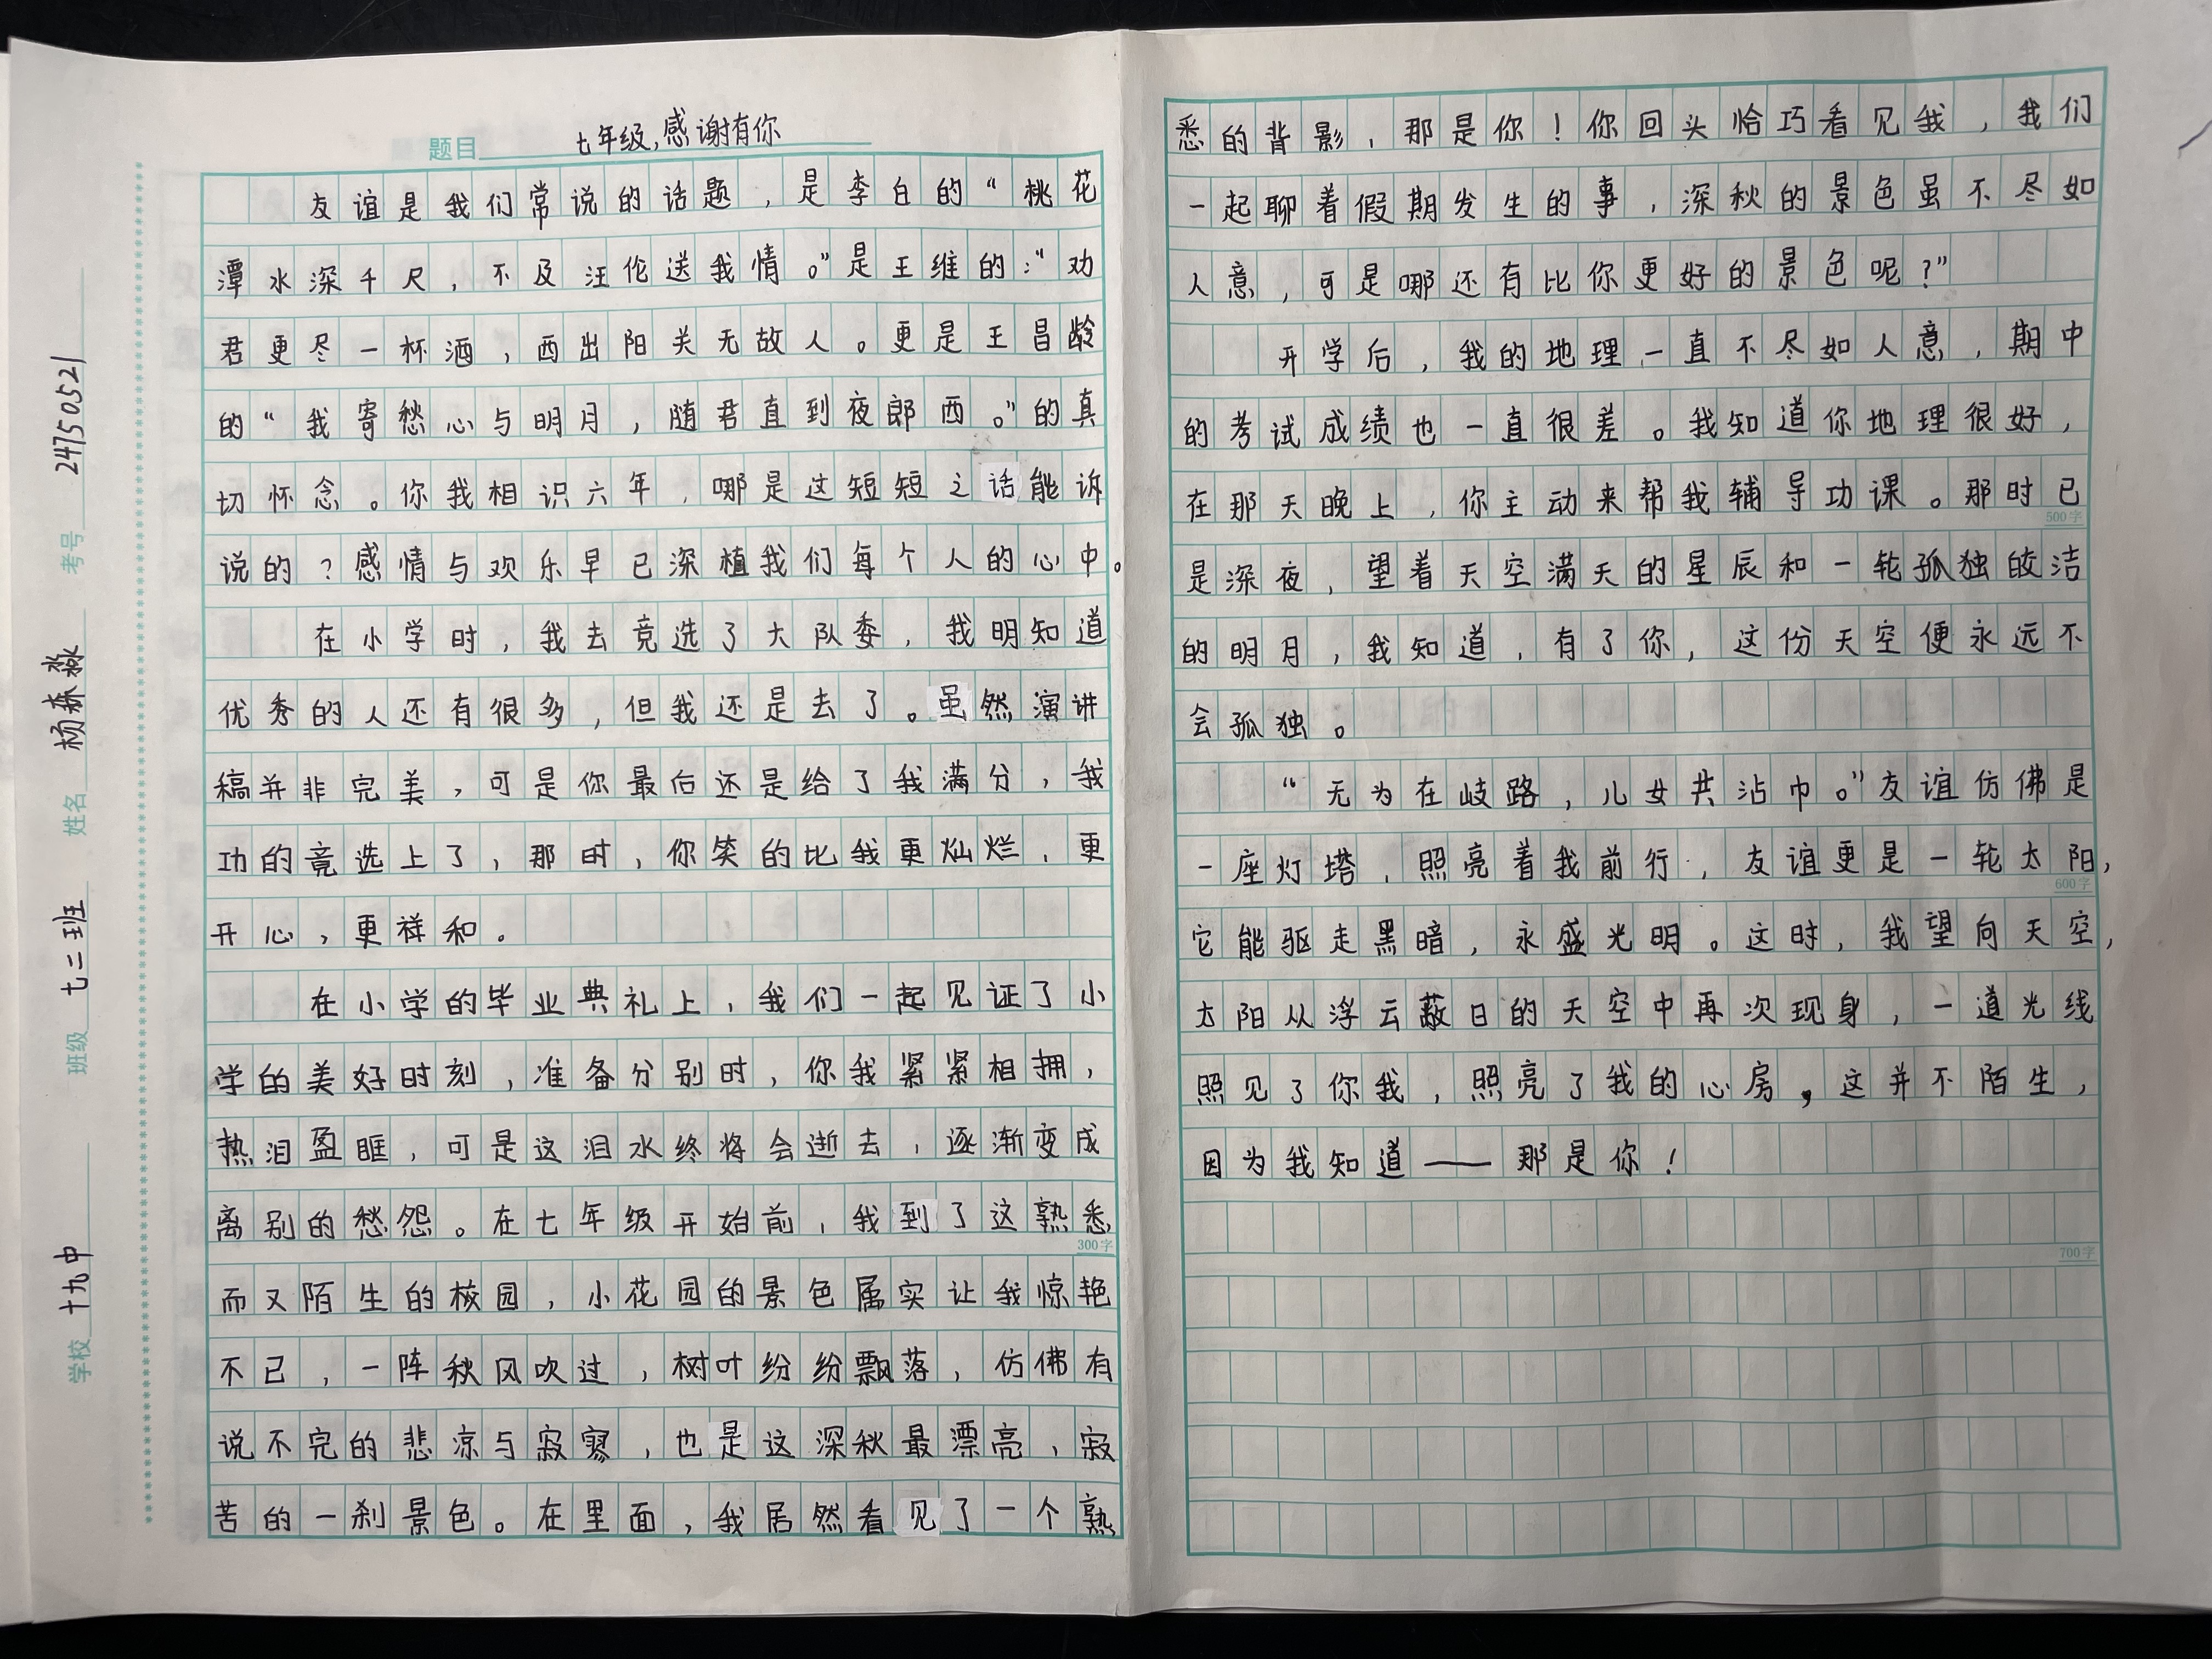 题目 七年级,感谢有你
友谊是我们常说的话题，是李白的“桃花
潭水深千尺，不及汪伦送我情。”是王维的:“劝
君更尽一杯酒，西出阳关无故人。更是王昌龄
的“我寄愁心与明月，随君直到夜郎西。”的真
切怀念。你我相识六年，哪是这短短之话能诉
说的？感情与欢乐早已深植我们每个人的心中。
在小学时，我去竞选了大队委，我明知道
优秀的人还有很多，但我还是去了。虽然演讲
稿并非完美，可是你最后还是给了我满分，我
功的竟选上了，那时，你笑的比我更灿烂，更
开心，更祥和。
在小学的毕业典礼上，我们一起见证了小
学的美好时刻，准备分别时，你我紧紧相拥，
热泪盈眶，可是这泪水终将会逝去，逐渐变成
离别的愁怨。在七年级开始前，我到了这熟悉
300字
而又陌生的校园，小花园的景色属实让我惊艳
不已，一阵秋风吹过，树叶纷纷飘落，仿佛有
说不完的悲凉与寂寥，也是这深秋最漂亮，寂
苦的一刹景色。在里面，我居然看见了一个熟
悉的背影，那是你！你回头恰巧看见我，我们
一起聊着假期发生的事，深秋的景色虽不尽如
人意，可是哪还有比你更好的景色呢？”
开学后，我的地理一直不尽如人意，期中
的考试成绩也一直很差。我知道你地理很好，
在那天晚上，你主动来帮我辅导功课。那时已
500字
是深夜，望着天空满天的星辰和一轮孤独皎洁
的明月，我知道，有了你，这份天空便永远不
会孤独。
“无为在岐路，儿女共沾巾。”友谊仿佛是
一座灯塔，照亮着我前行，友谊更是一轮太阳，
600字
它能驱走黑暗，永盛光明。这时，我望向天空，
太阳从浮云蔽日的天空中再次现身，一道光线
照见了你我，照亮了我的心房，这并不陌生，
因为我知道——那是你！
700字
学校 十九中 班级 七二班 姓名 杨森淼 考号 24150521